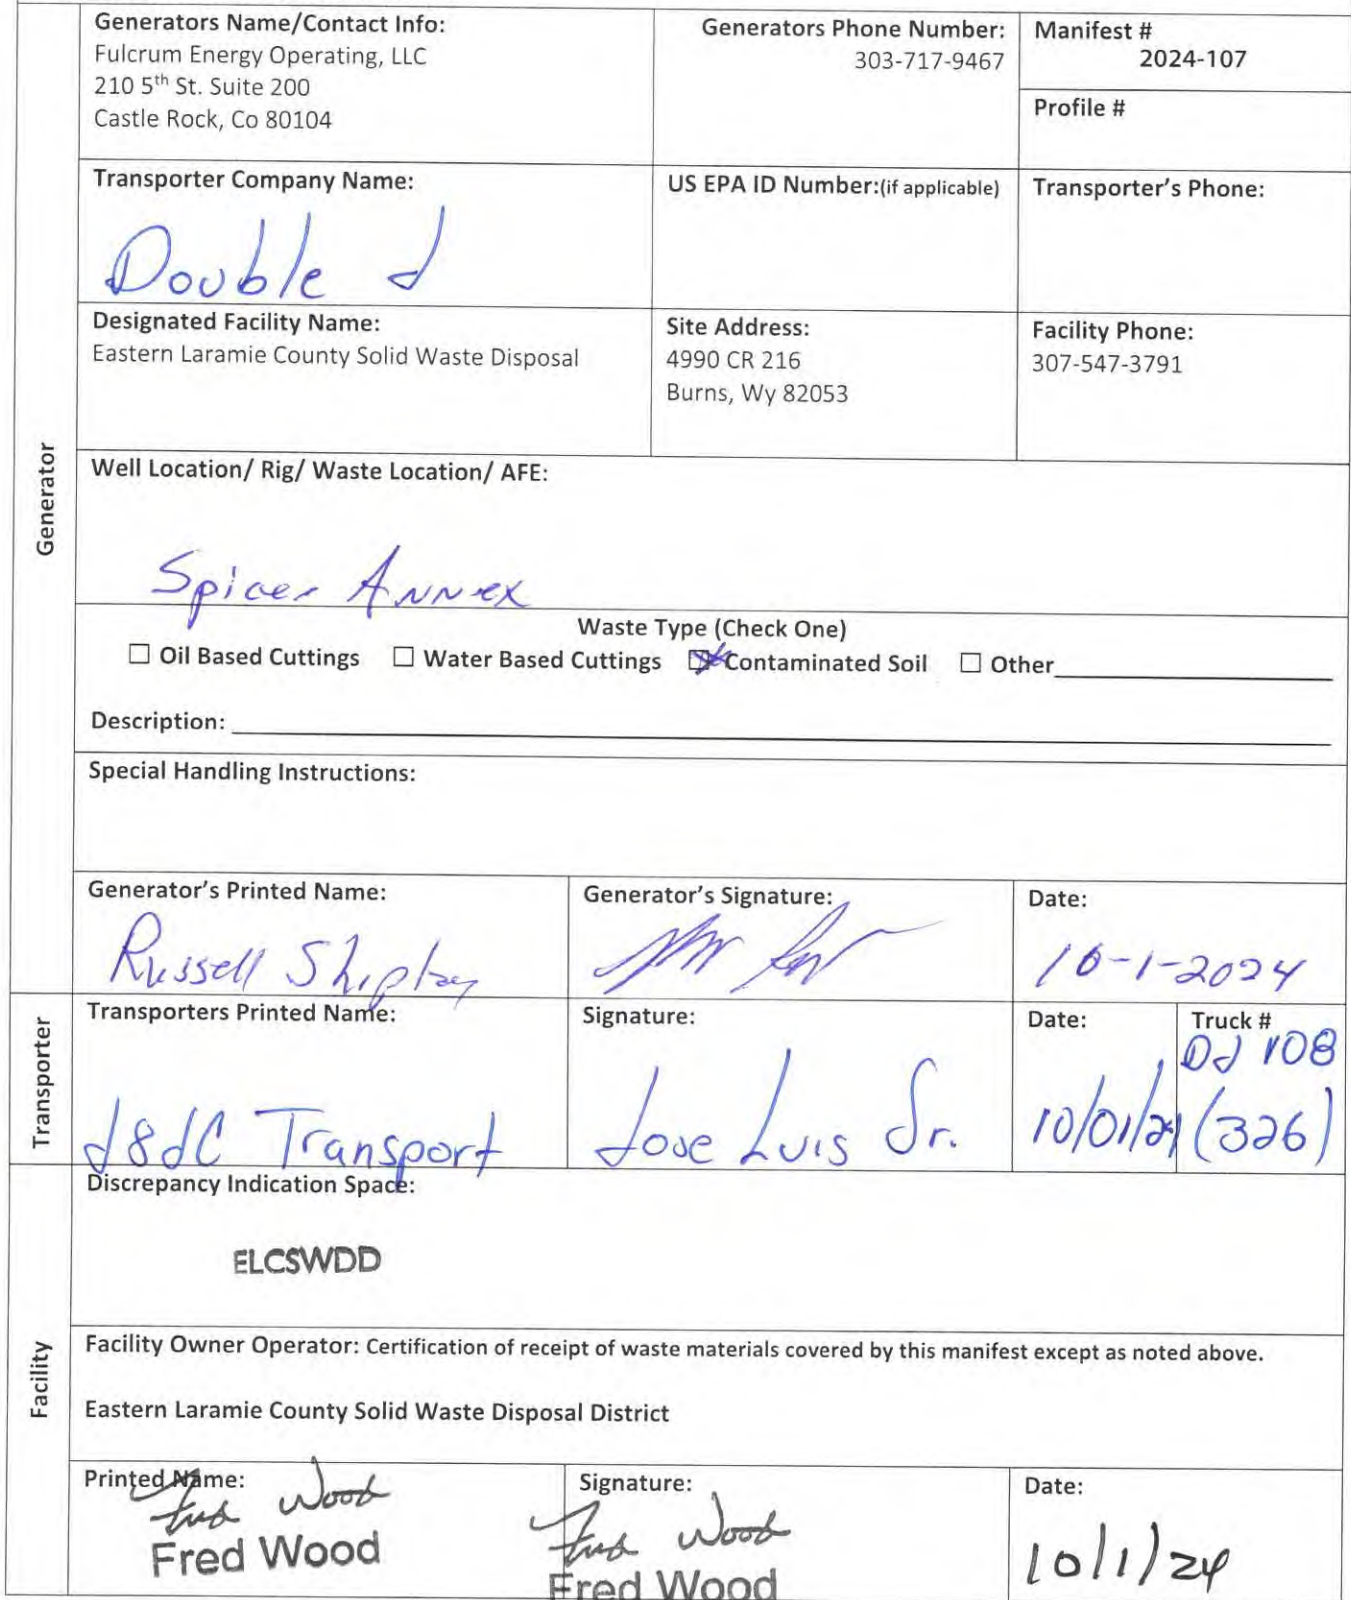 Generators Name/Contact Info:
Fulcrum Energy Operating, LLC
210 5th St. Suite 200
Castle Rock, Co 80104
Generators Phone Number:
303-717-9467
Manifest #
2024-107
Profile #
Transporter Company Name:
Double d
US EPA ID Number:(if applicable)
Transporter's Phone:
Designated Facility Name:
Eastern Laramie County Solid Waste Disposal
Site Address:
4990 CR 216
Burns, Wy 82053
Facility Phone:
307-547-3791
Generator
Well Location/ Rig/ Waste Location/ AFE:
Spicer Annex
Waste Type (Check One)
☐ Oil Based Cuttings ☐ Water Based Cuttings ☒ Contaminated Soil ☐ Other
Description:
Special Handling Instructions:
Generator's Printed Name:
Russell Shipley
Generator's Signature:
Date:
10-1-2024
Transporter
Transporters Printed Name:
d8dC Transport
Signature:
Jose Luis Jr.
Date:
10/01/24
Truck #
DJ 108
(326)
Facility
Discrepancy Indication Space:
ELCSWDD
Facility Owner Operator: Certification of receipt of waste materials covered by this manifest except as noted above.
Eastern Laramie County Solid Waste Disposal District
Printed Name:
Fred Wood
Fred Wood
Signature:
Fred Wood
Fred Wood
Date:
10/1/24